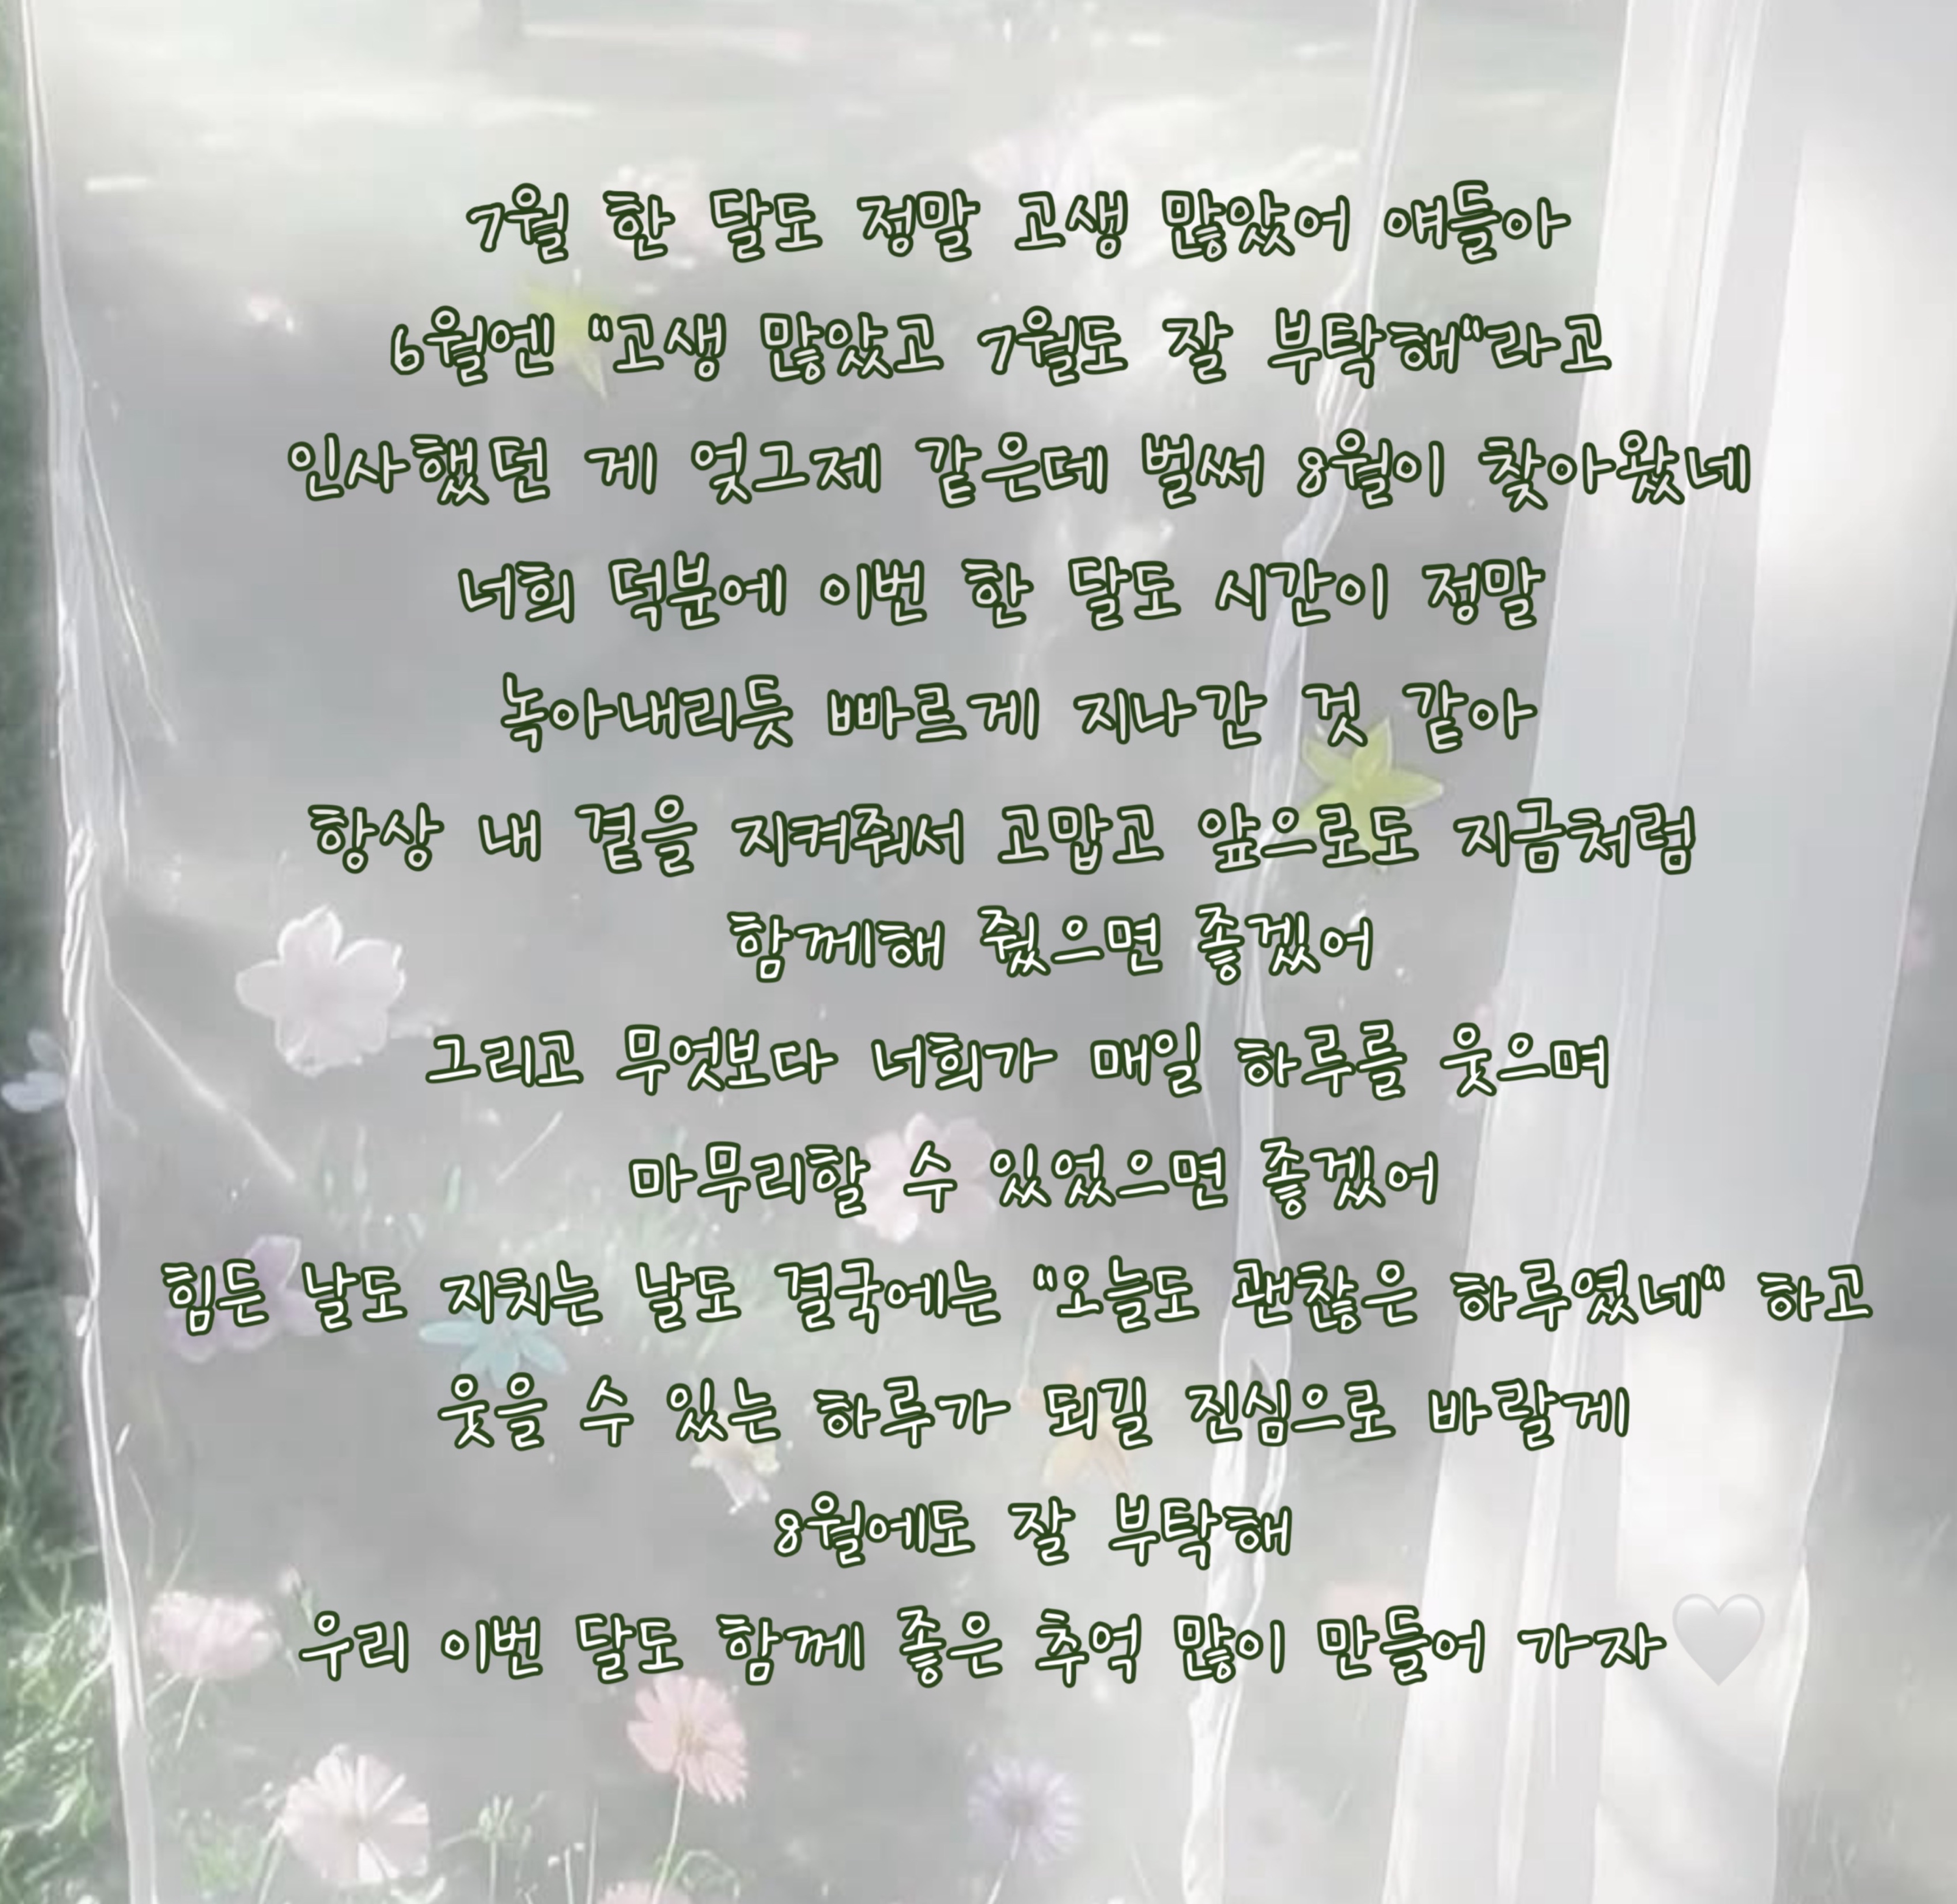 7월 한 달도 정말 고생 많았어 얘들아
6월엔 "고생 많았고 7월도 잘 부탁해"라고
인사했던 게 엊그제 같은데 벌써 8월이 찾아왔네
너희 덕분에 이번 한 달도 시간이 정말
녹아내리듯 빠르게 지나간 것 같아
항상 내 곁을 지켜줘서 고맙고 앞으로도 지금처럼
함께해 줬으면 좋겠어
그리고 무엇보다 너희가 매일 하루를 웃으며
마무리할 수 있었으면 좋겠어
힘든 날도 지치는 날도 결국에는 "오늘도 괜찮은 하루였네" 하고
웃을 수 있는 하루가 되길 진심으로 바랄게
8월에도 잘 부탁해
우리 이번 달도 함께 좋은 추억 많이 만들어 가자🤍